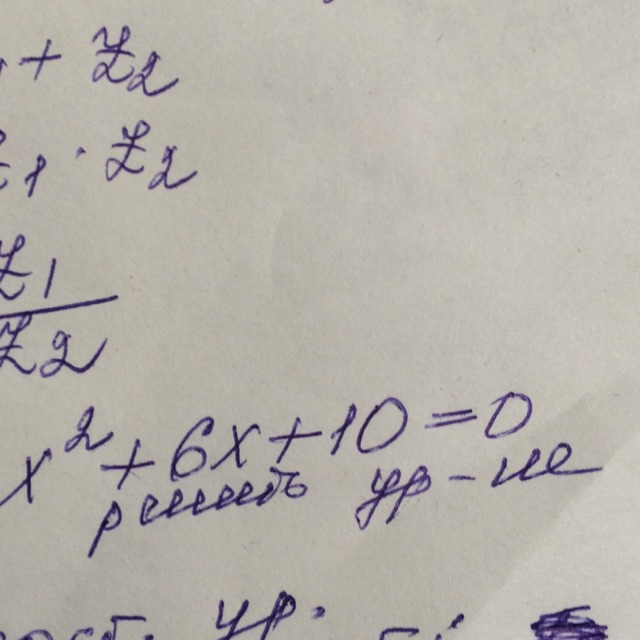 + Z2
Z1 · Z2
Z1
Z2
x² + 6x + 10 = 0
решить ур-ие
ур.